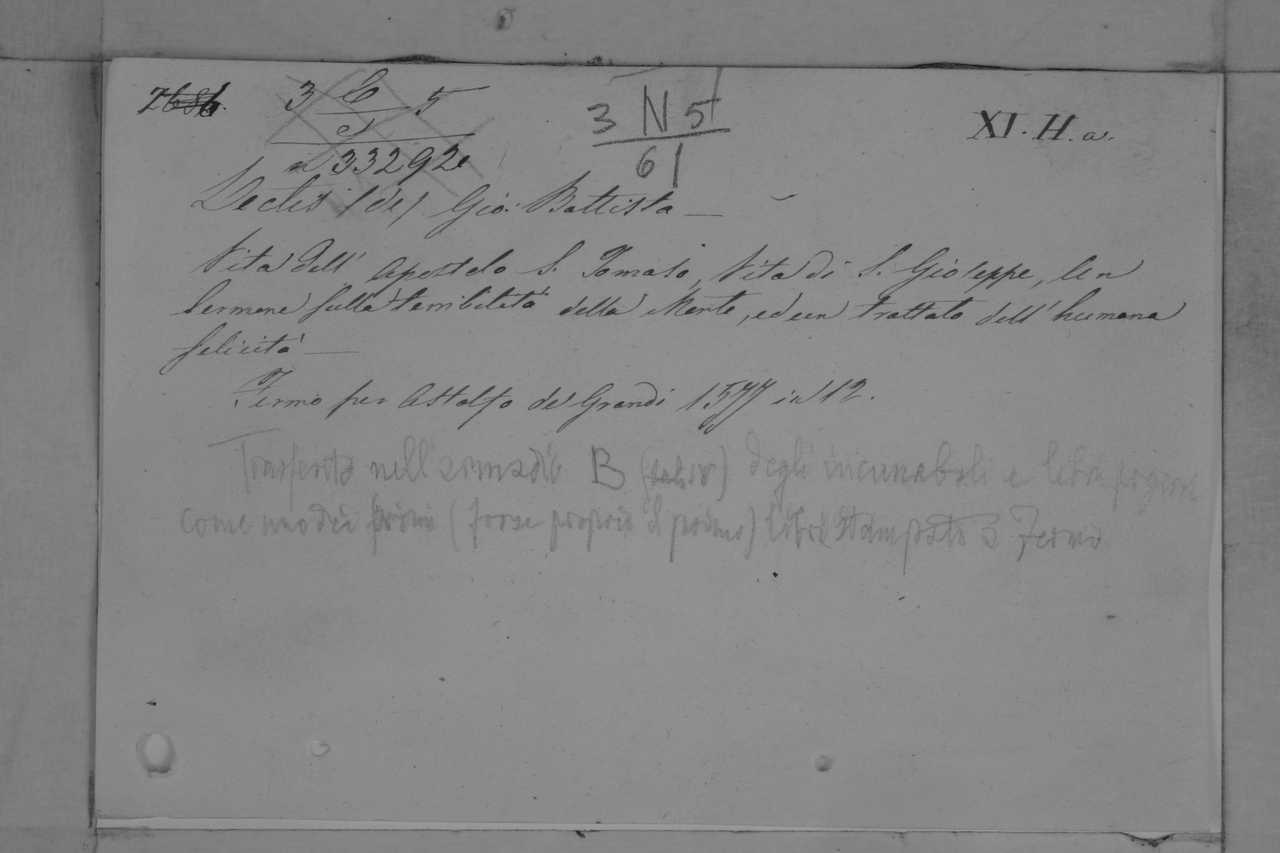 3 C 5
3 N 5
XI. H. a.
61
33292
Lectis (de) Gio: Battista —
Vita dell' Apostolo S. Tomaso, Vita di S. Gioseppe, Un
Sermone sulla terribilità della Morte, ed un trattato dell' humana
felicità —
Fermo per Astolfo de Grandi 1577 in 12.
Trasferito nell' armadio B degli incunaboli e libri
come uno dei primi (forse proprio il primo) libri stampato a Fermo